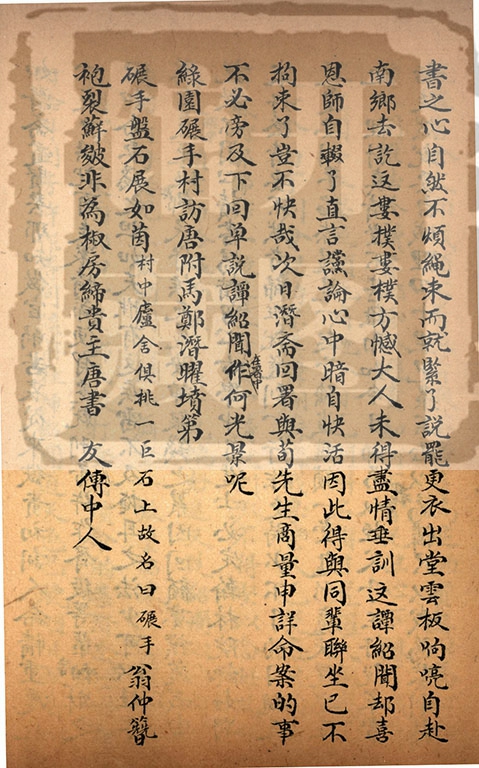 書之心自然不煩繩束而就緊了說罷更衣出堂雲板响喨自赴
南鄉去訖这婁樸婁樸方憾大人未得盡情垂訓这譚紹聞却喜
恩師自輟了直言讜論心中暗自快活因此得與同輩聯坐已不
拘束了豈不快哉次日潛斋回署與荀先生商量申詳命案的事
不必傍及下回单說譚紹聞作何光景呢
在署中
綠園碾手村訪唐附馬鄭潛曜墳第
碾手盤石展如茵村中廬舍俱挑一巨石上故名曰碾手翁仲簪
袍裂蘚皴非為椒房締貴主唐書 友傳中人